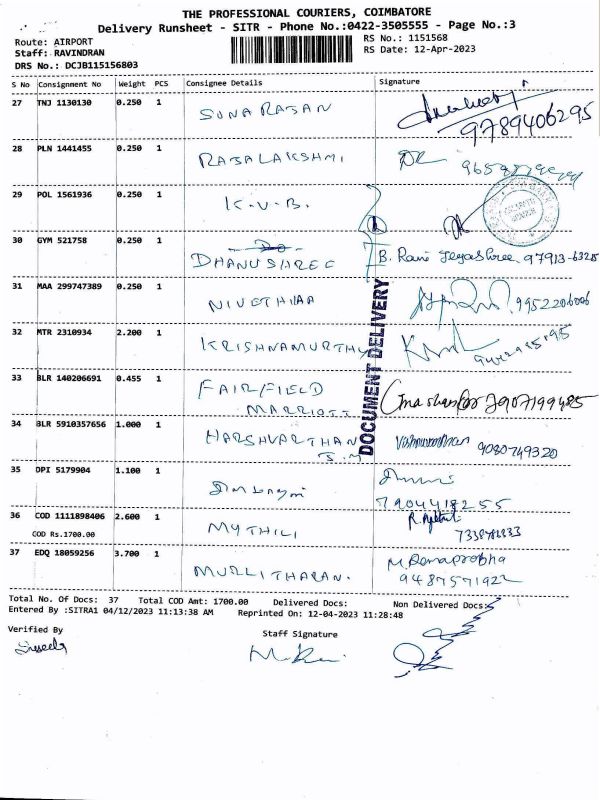 THE PROFESSIONAL COURIERS, COIMBATORE
Delivery Runsheet - SITR - Phone No.:0422-3505555 - Page No.:3
Route: AIRPORT
RS No.: 1151568
Staff: RAVINDRAN
RS Date: 12-Apr-2023
DRS No.: DCJB115156803
S No Consignment No Weight PCS Consignee Details Signature
27 TNJ 1130130 0.250 1 SUNA RAJAN
9789406295
28 PLN 1441455 0.250 1 RAJALAKSHMI
29 POL 1561936 0.250 1 K.V.B.
30 GYM 521758 0.250 1 DHANUSHREE B. Rani Jeyashree 97913-63215
31 MAA 299747389 0.250 1 NIVETHAA 9952206006
32 MTR 2310934 2.200 1 KRISHNAMURTHY
33 BLR 140206691 0.455 1 FAIRFIELD MARRIOTT 7907199485
34 BLR 5910357656 1.000 1 HARSHVARTHAN 9080749320
35 DPI 5179904 1.100 1
7904418255
36 COD 1111898406 2.600 1 MYTHILI
COD Rs.1700.00
37 EDQ 18059256 3.700 1 MURLITHARAN.
9487571922
DOCUMENT DELIVERY
Total No. Of Docs: 37 Total COD Amt: 1700.00 Delivered Docs: Non Delivered Docs:
Entered By :SITRA1 04/12/2023 11:13:38 AM Reprinted On: 12-04-2023 11:28:48
Verified By
Staff Signature